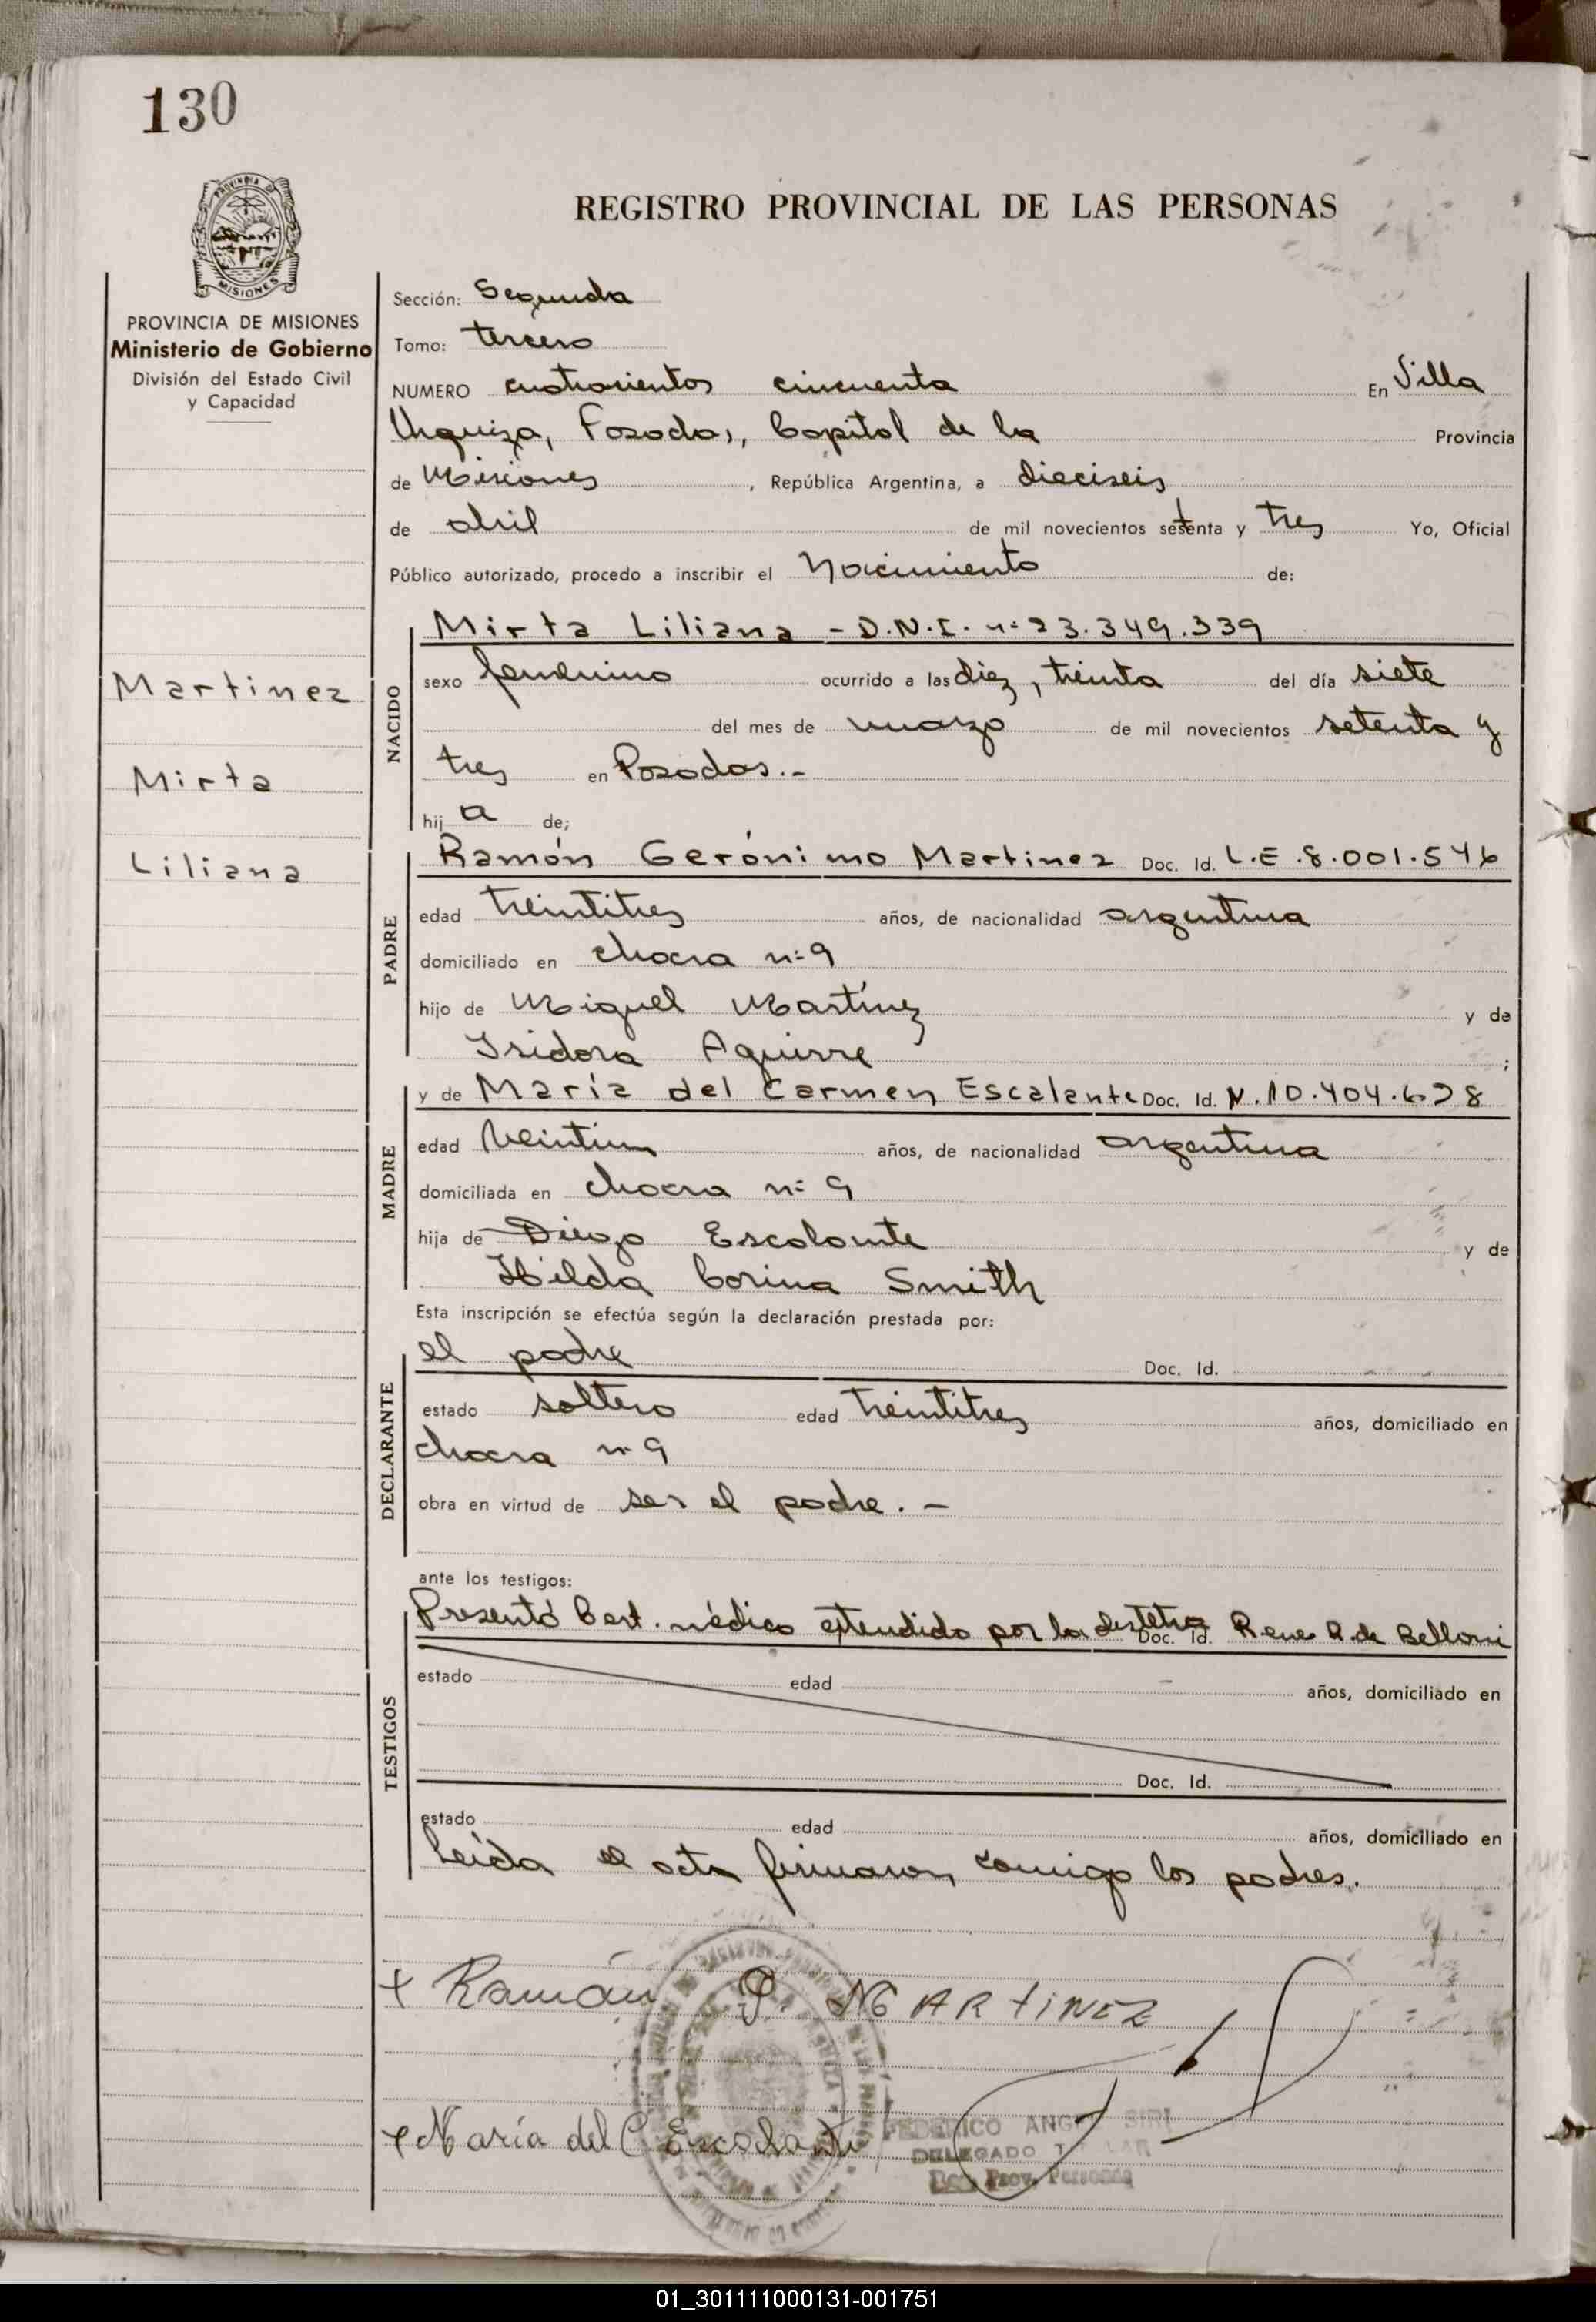 130
PROVINCIA DE
MISIONES
PROVINCIA DE MISIONES
Ministerio de Gobierno
División del Estado Civil
y Capacidad
Martinez
Mirta
Liliana
REGISTRO PROVINCIAL DE LAS PERSONAS
Sección: Segunda
Tomo: tercero
NUMERO cuatrocientos cincuenta En Villa
Urquiza, Posadas, Capital de la Provincia
de Misiones, República Argentina, a dieciseis
de abril de mil novecientos setenta y tres Yo, Oficial
Público autorizado, procedo a inscribir el Nacimiento de:
NACIDO
Mirta Liliana - D.N.I. nº 23.349.339
sexo femenino ocurrido a las diez, treinta del día siete
del mes de marzo de mil novecientos setenta y
tres en Posadas.-
hij a de;
PADRE
Ramón Gerónimo Martinez Doc. Id. L.E.8.001.546
edad treintitres años, de nacionalidad argentina
domiciliado en chacra nº 9
hijo de Miguel Martínez y de
Isidora Aguirre ;
MADRE
y de María del Carmen Escalante Doc. Id. N.10.404.628
edad veintiun años, de nacionalidad argentina
domiciliada en chacra nº 9
hija de Diego Escalante y de
Hilda Corina Smith
Esta inscripción se efectúa según la declaración prestada por:
DECLARANTE
el padre Doc. Id.
estado soltero edad treintitres años, domiciliado en
chacra nº 9
obra en virtud de ser el padre. -
ante los testigos:
TESTIGOS
Presentó Cert. médico extendido por la obstetra Doc. Id. Rene R. de Belloni
estado edad años, domiciliado en
Doc. Id.
estado edad años, domiciliado en
Leída el acta firmaron comigo los padres.
+ Ramón G. MARTINEZ
+ María del C Escalante
FEDERICO ANGEL SIRI
DELEGADO TITULAR
Reg. Prov. Personas
01_301111000131-001751